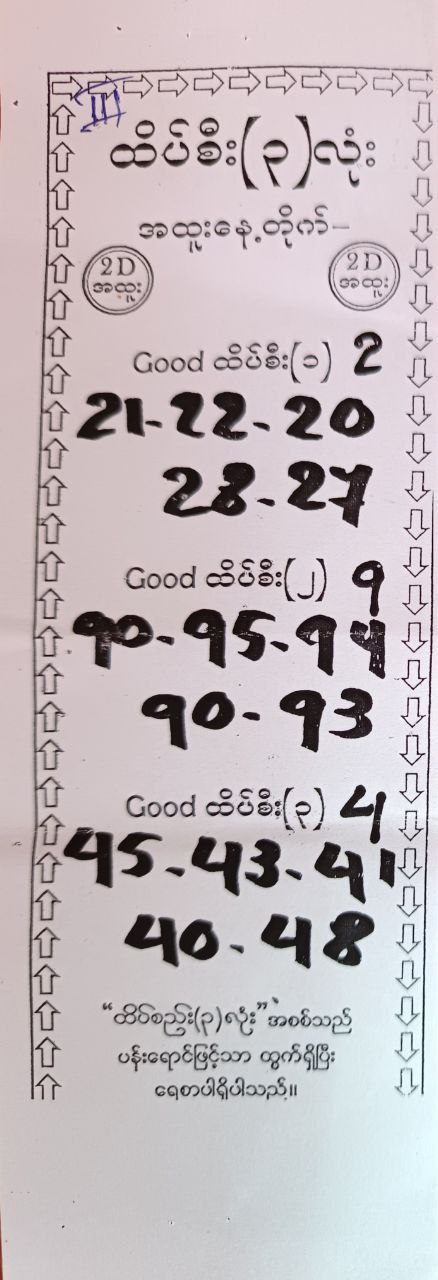 III
ထိပ်စီး(၃)လုံး
အထူးနေ့တိုက်–
2D အထူး
2D အထူး
Good ထိပ်စီး(၁) 2
21-22-20
28-27
Good ထိပ်စီး(၂) 9
90-95-94
90-93
Good ထိပ်စီး(၃) 4
45-43-41
40-48
“ထိပ်စည်း(၃)လုံး” အစစ်သည်
ပန်းရောင်ဖြင့်သာ ထွက်ရှိပြီး
ရေစာပါရှိပါသည်။